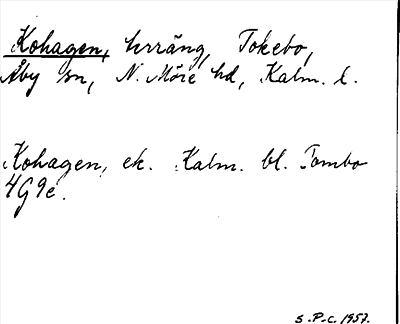 Kohagen, hrräng, Tokebo,
Åby sn, N. Möre hd, Kalm. l.
Kohagen, ek. Kalm. bl. Tombo
4G9e.
S.P-c. 1957.